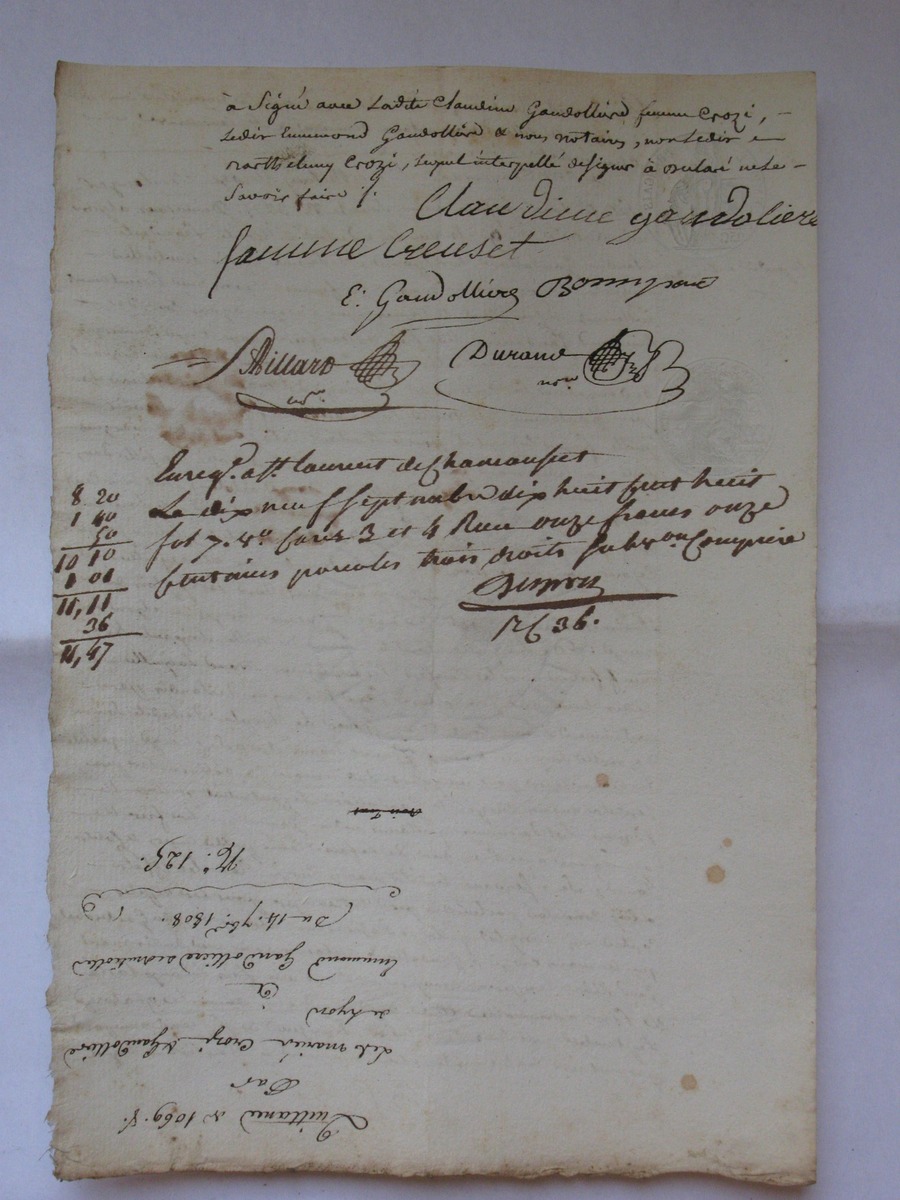 à Signé avec Ladite Claudine Gandolliere femme Crozi,
Ledit Ennemond Gandolliere & nous notaires, non Ledit
Barthelemy Crozi, lequel interpellé de signer à declaré ne Le
Savoir faire ./.
Claudinne gandoliere
famme Creuset
E. Gandolliere
Billard Durand
nre. nre.
Enregé. à St. laurent de Chamousset
Le dix neuf Septembre dix huit Cent huit
fol 7. vo. Cases 3 et 4 Reçu onze francs onze
Centimes pour les trois droits Subvon Comprise
8 20
1 40
50
10 10
1 01
11, 11
36
11, 47
36.
No. 125.
Du 14. 7bre. 1808.
Quittance de 1069. f.
Par
Les mariés Crozi & Gandolliere
de Lyon
à
Ennemond Gandolliere